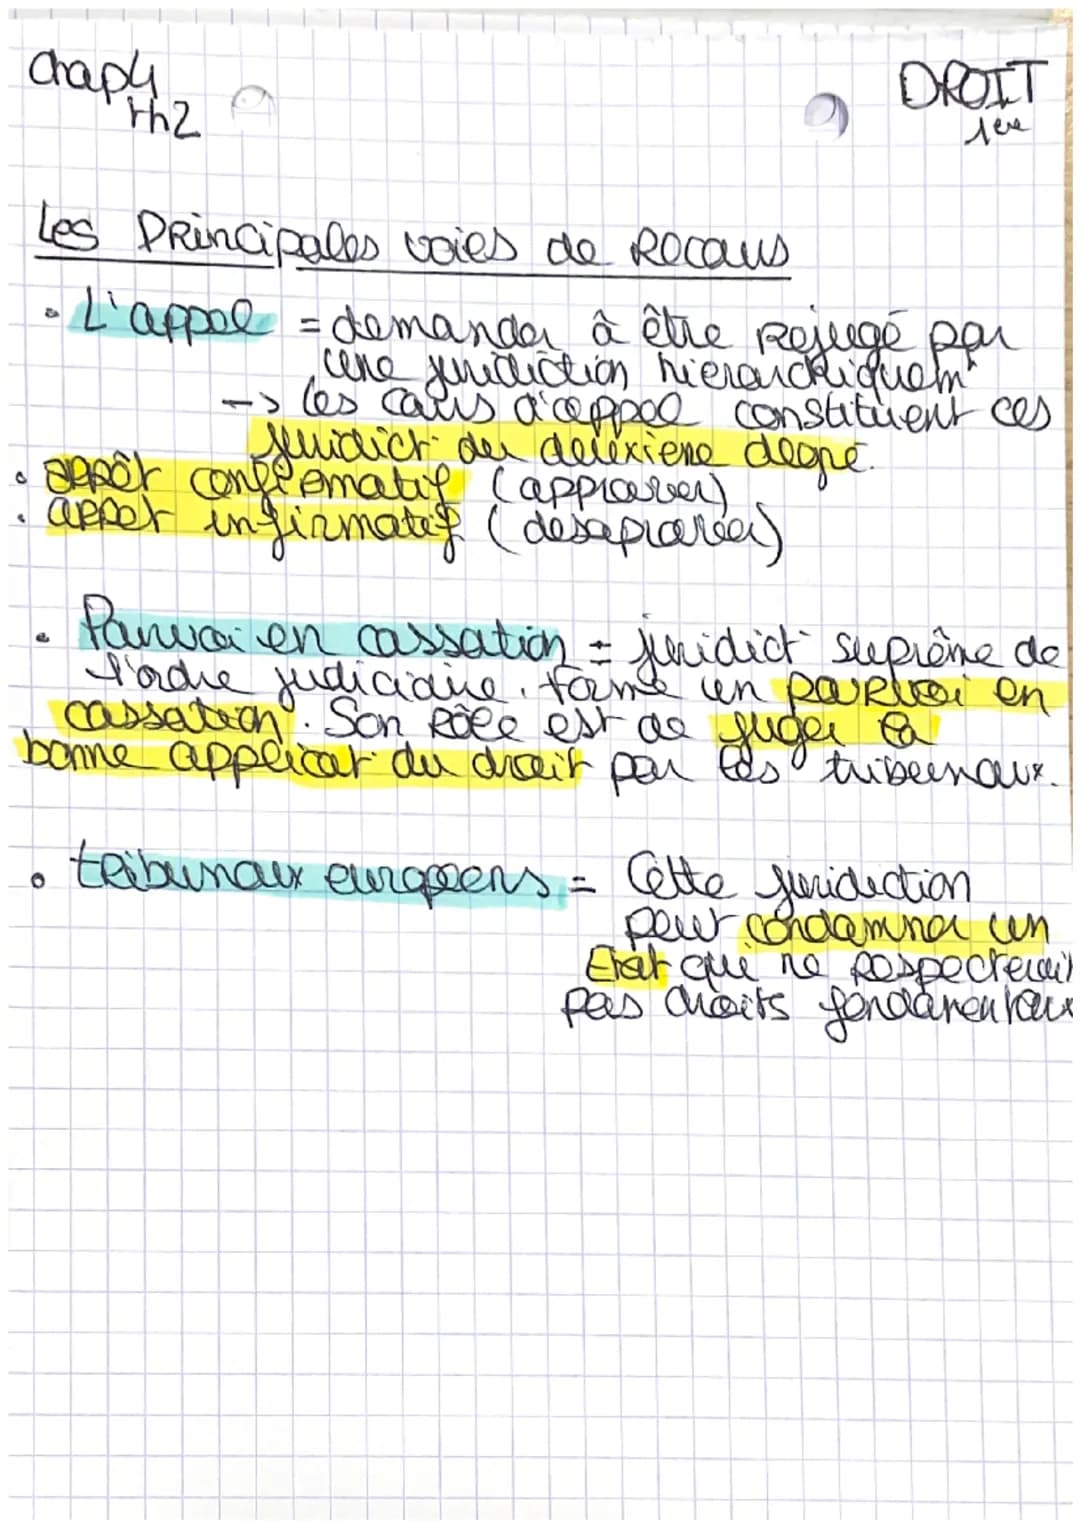 Chap 4
th2
DROIT
1ère
Les Principales voies de Recours
• L'appel = demander à être rejugé par
une juridiction hierarchiquemt
-> les cours d'appel constituent ces
juridict° du deuxieme degré.
• arrêt confirmatif (approuver)
• arret infirmatif (desaprouver)
• Pourvoi en cassation = juridict° suprême de
l'ordre judiciaire. forme un pourvoi en
cassation. Son rôle est de juger la
bonne applicat° du droit par les tribunaux.
• tribunaux européens = Cette juridiction
peut condamner un
Etat qui ne respecterait
pas droits fondamentaux